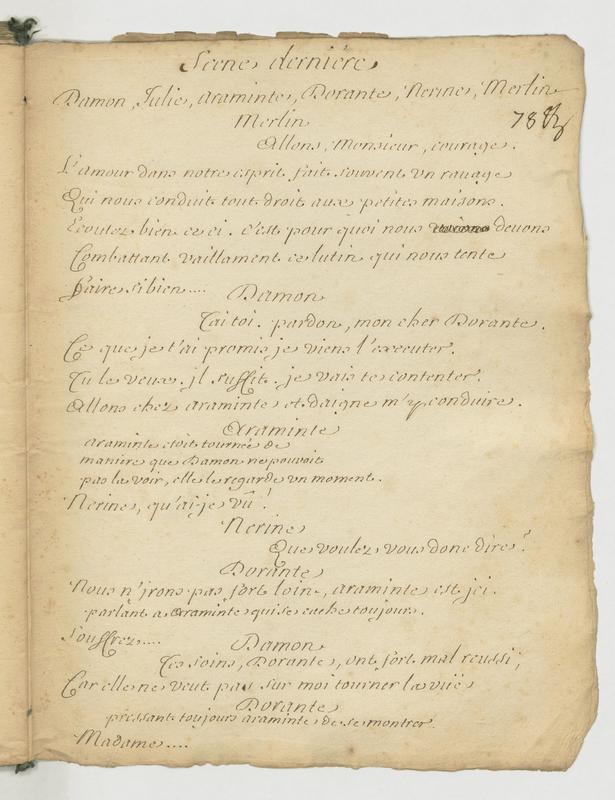 Scene derniére
Damon, Julie, araminte, Dorante, Nerine, Merlin
78
Merlin
Allons, Monsieur, courage.
L'amour dans notre esprit fait souvent vn rauage
Qui nous conduit tout droit aux petites maisons.
Ecoutez bien ceci. c'est pour quoi nous devons
Combattant vaillament ce lutin qui nous tente
Faire si bien....
Damon
Tai toi. pardon, mon cher Dorante.
Ce que je t'ai promis je viens l'executer.
Tu le veux. jl suffit. je vais te contenter.
Allons chez araminte et daigne m'y conduire.
Araminte
araminte etoit tournée de
maniere que Damon ne pouvoit
pas la voir, elle le regarde vn moment.
Nerine, qu'ai-je vû!
Nerine
Que voulez vous donc dire?
Dorante
Nous n'jrons pas fort loin, araminte est jci.
parlant a araminte qui se cache toujours.
Souffrez....
Damon
Tes soins, Dorante, ont fort mal reussi,
Car elle ne veut pas sur moi tourner la vüe
Dorante
pressant toujours araminte de se montrer.
Madame....